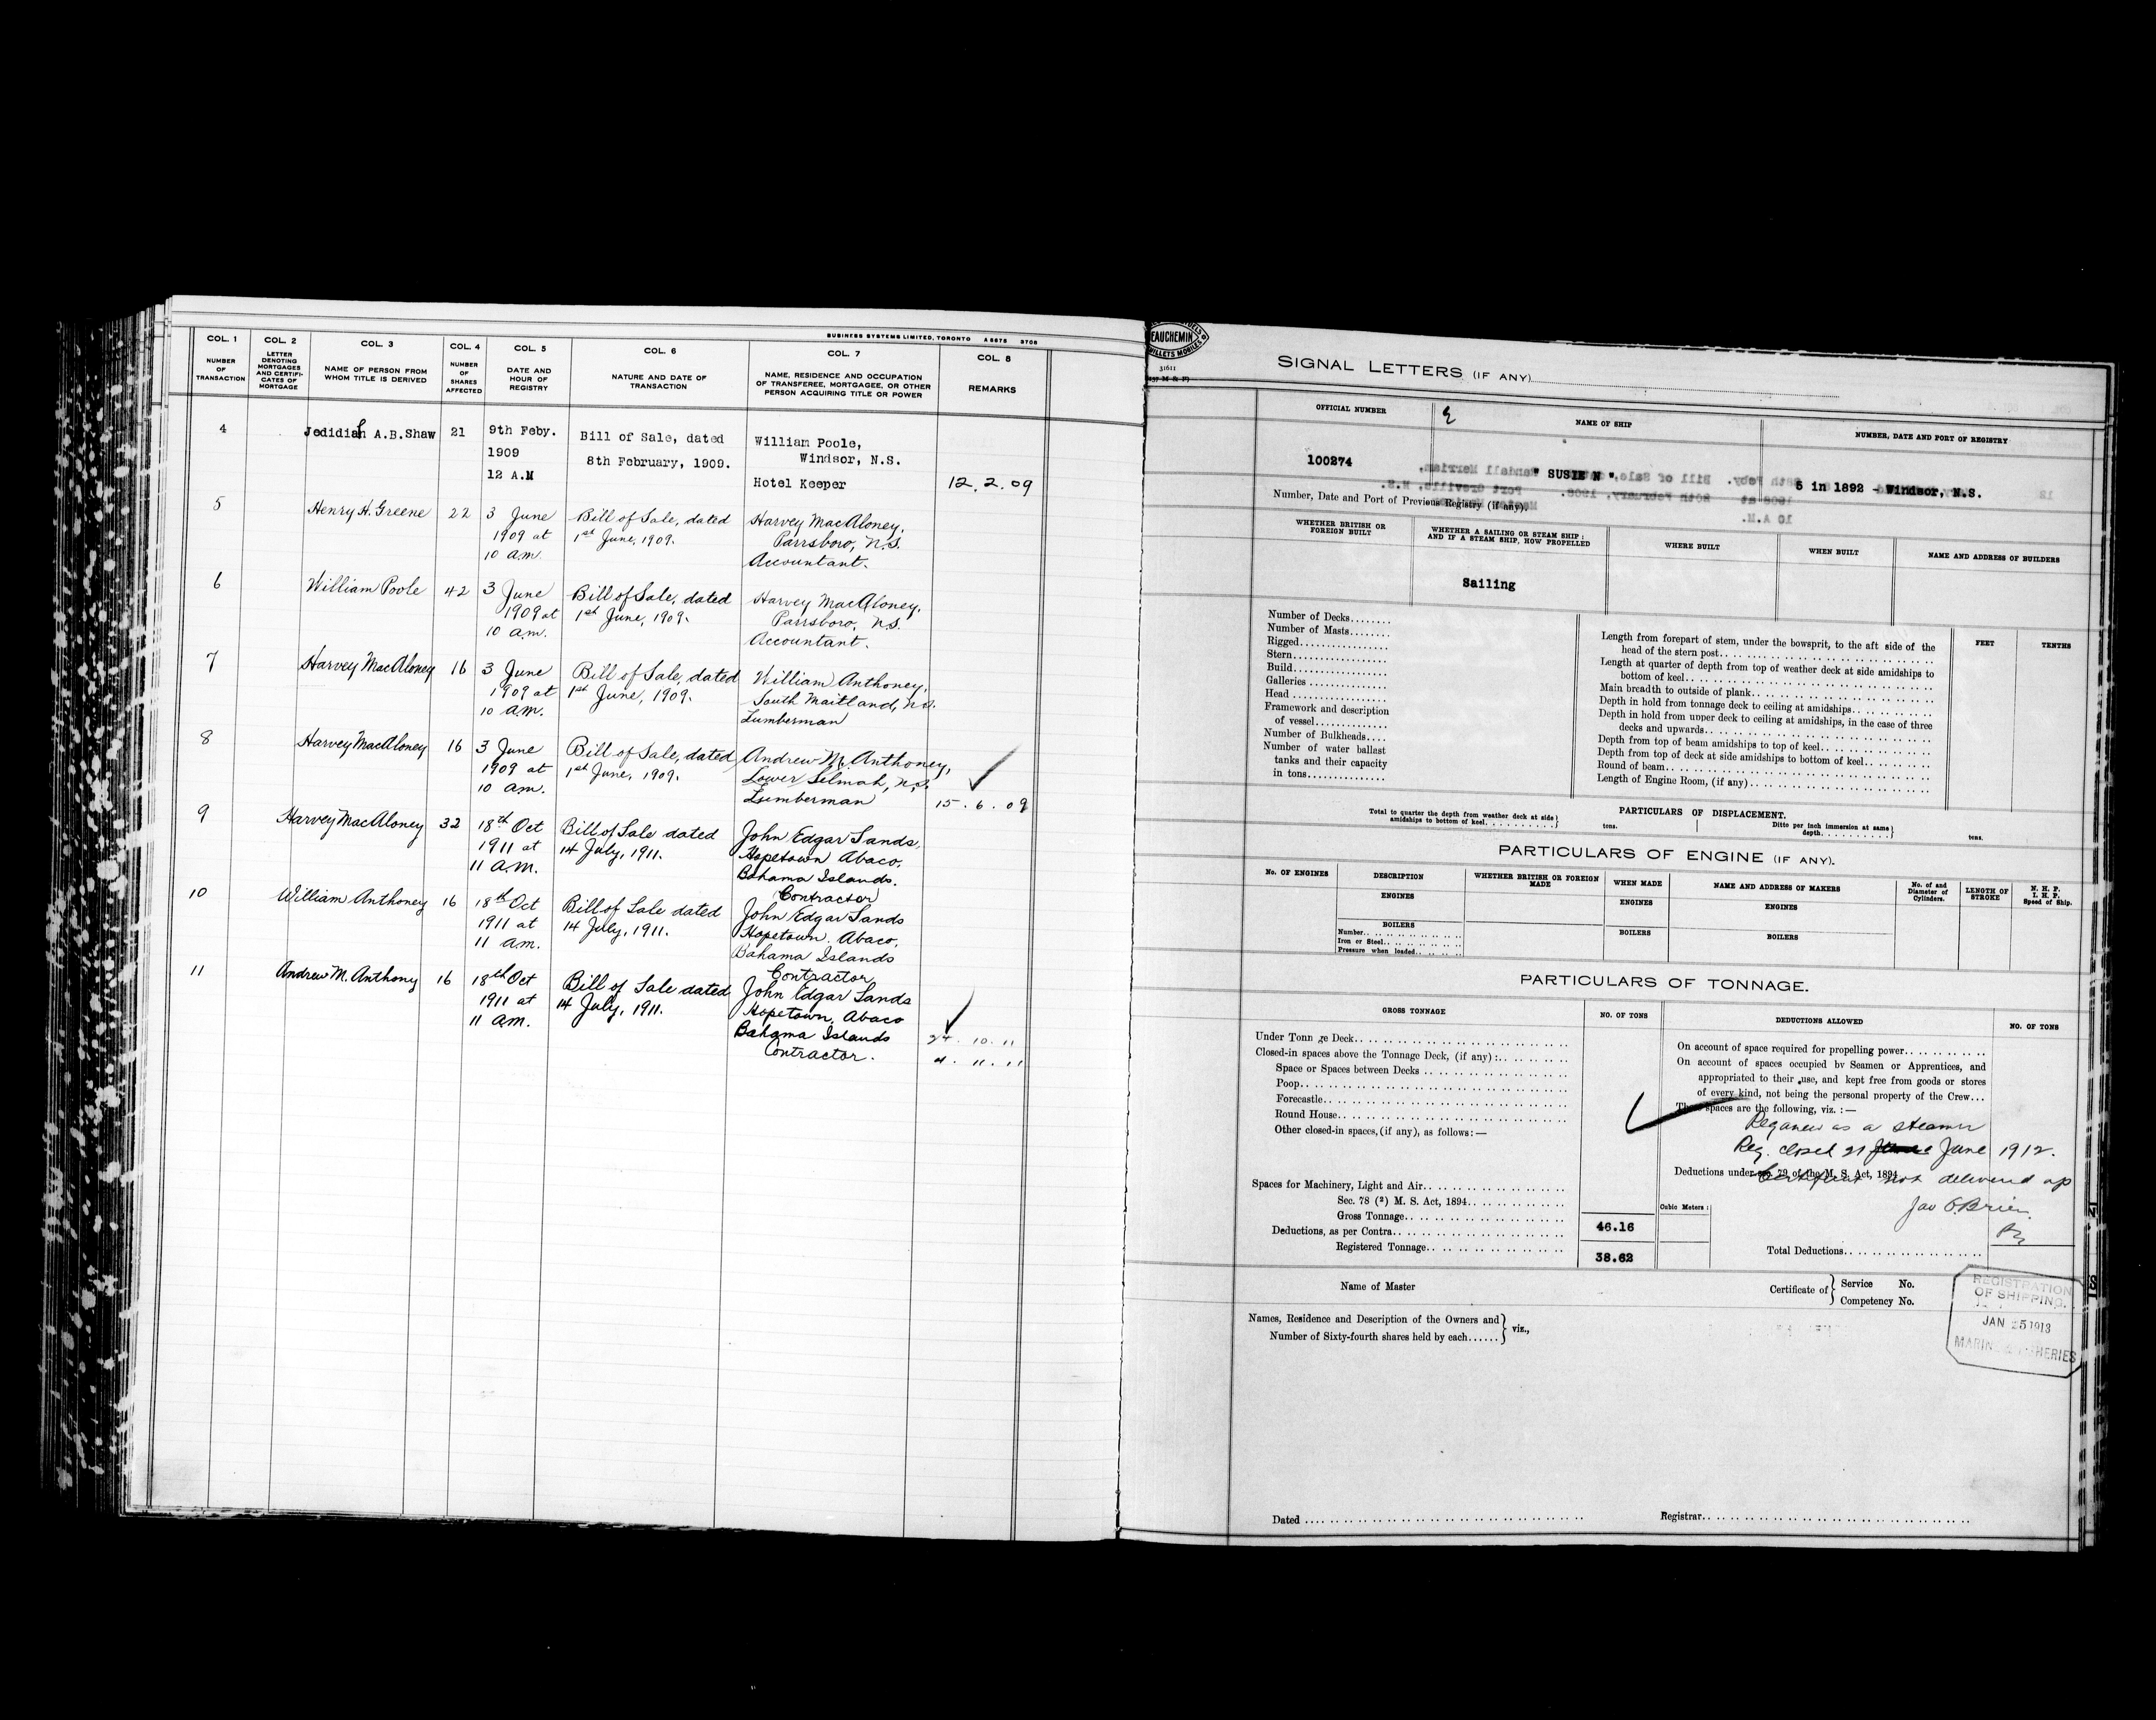 BUSINESS SYSTEMS LIMITED, TORONTO A 8675 3708
COL. 1 COL. 2 COL. 3 COL. 4 COL. 5 COL. 6 COL. 7 COL. 8
NUMBER OF TRANSACTION
LETTER DENOTING MORTGAGES AND CERTIFI-CATES OF MORTGAGE
NAME OF PERSON FROM WHOM TITLE IS DERIVED
NUMBER OF SHARES AFFECTED
DATE AND HOUR OF REGISTRY
NATURE AND DATE OF TRANSACTION
NAME, RESIDENCE AND OCCUPATION OF TRANSFEREE, MORTGAGEE, OR OTHER PERSON ACQUIRING TITLE OR POWER
REMARKS
4 Jedidiah A.B.Shaw 21 9th Feby. Bill of Sale, dated William Poole,
1909 8th February, 1909. Windsor, N.S.
12 A.M Hotel Keeper 12.2.09
5 Henry H. Greene 22 3 June Bill of Sale, dated Harvey MacAloney,
1909 at 1st June, 1909. Parrsboro, N.S.
10 a.m. Accountant.
6 William Poole 42 3 June Bill of Sale, dated Harvey MacAloney,
1909 at 1st June, 1909. Parrsboro, N.S.
10 a.m. Accountant.
7 Harvey MacAloney 16 3 June Bill of Sale, dated William Anthoney,
1909 at 1st June, 1909. South Maitland, N.S.
10 a.m. Lumberman
8 Harvey MacAloney 16 3 June Bill of Sale, dated Andrew M. Anthoney,
1909 at 1st June, 1909. Lower Selmah, N.S.
10 am. Lumberman 15.6.09
9 Harvey MacAloney 32 18th Oct Bill of Sale dated John Edgar Sands,
1911 at 14 July, 1911. Hopetown Abaco,
11 A.M. Bahama Islands.
Contractor
10 William Anthoney 16 18th Oct Bill of Sale dated John Edgar Sands
1911 at 14 July, 1911. Hopetown. Abaco,
11 am. Bahama Islands
Contractor
11 Andrew M. Anthony 16 18th Oct Bill of Sale dated John Edgar Sands
1911 at 14 July, 1911. Hopetown, Abaco
11 am. Bahama Islands 24.10.11
Contractor. 4.11.11
EAUCHEMIN
ILLETS MOBILES
31611
SIGNAL LETTERS (IF ANY)
OFFICIAL NUMBER NAME OF SHIP NUMBER, DATE AND PORT OF REGISTRY
100274 " SUSIE N " 5 in 1892 - Windsor, N.S.
Number, Date and Port of Previous Registry (if any).
WHETHER BRITISH OR FOREIGN BUILT
WHETHER A SAILING OR STEAM SHIP; AND IF A STEAM SHIP, HOW PROPELLED
WHERE BUILT WHEN BUILT NAME AND ADDRESS OF BUILDERS
Sailing
Number of Decks
Number of Masts
Rigged
Stern
Build
Galleries
Head
Framework and description
of vessel
Number of Bulkheads
Number of water ballast
tanks and their capacity
in tons
FEET TENTHS
Length from forepart of stem, under the bowsprit, to the aft side of the
head of the stern post
Length at quarter of depth from top of weather deck at side amidships to
bottom of keel
Main breadth to outside of plank
Depth in hold from tonnage deck to ceiling at amidships
Depth in hold from upper deck to ceiling at amidships, in the case of three
decks and upwards
Depth from top of beam amidships to top of keel
Depth from top of deck at side amidships to bottom of keel
Round of beam
Length of Engine Room, (if any)
PARTICULARS OF DISPLACEMENT.
Total to quarter the depth from weather deck at side amidships to bottom of keel tons. Ditto per inch immersion at same depth tons.
PARTICULARS OF ENGINE (IF ANY).
No. OF ENGINES DESCRIPTION WHETHER BRITISH OR FOREIGN MADE WHEN MADE NAME AND ADDRESS OF MAKERS No. of and Diameter of Cylinders. LENGTH OF STROKE N. H. P. I. H. P. Speed of Ship.
ENGINES ENGINES ENGINES
BOILERS BOILERS BOILERS
Number
Iron or Steel
Pressure when loaded
PARTICULARS OF TONNAGE.
GROSS TONNAGE NO. OF TONS DEDUCTIONS ALLOWED NO. OF TONS
Under Tonnage Deck
Closed-in spaces above the Tonnage Deck, (if any):
Space or Spaces between Decks
Poop
Forecastle
Round House
Other closed-in spaces, (if any), as follows:—
Spaces for Machinery, Light and Air
Sec. 78 (2) M. S. Act, 1894
Gross Tonnage 46.16
Deductions, as per Contra
Registered Tonnage 38.62
Cubic Meters:
On account of space required for propelling power
On account of spaces occupied by Seamen or Apprentices, and
appropriated to their use, and kept free from goods or stores
of every kind, not being the personal property of the Crew
These spaces are the following, viz.:—
Reg anew as a steamer
Reg. closed 21 June 1912.
Deductions under sec. 79 of the M. S. Act, 1894
Certificate not delivered up
Jas O'Brien
Total Deductions
Name of Master Certificate of Service No.
Competency No.
Names, Residence and Description of the Owners and
Number of Sixty-fourth shares held by each viz.,
REGISTRATION
OF SHIPPING.
JAN 25 1913
MARINE & FISHERIES
Dated Registrar